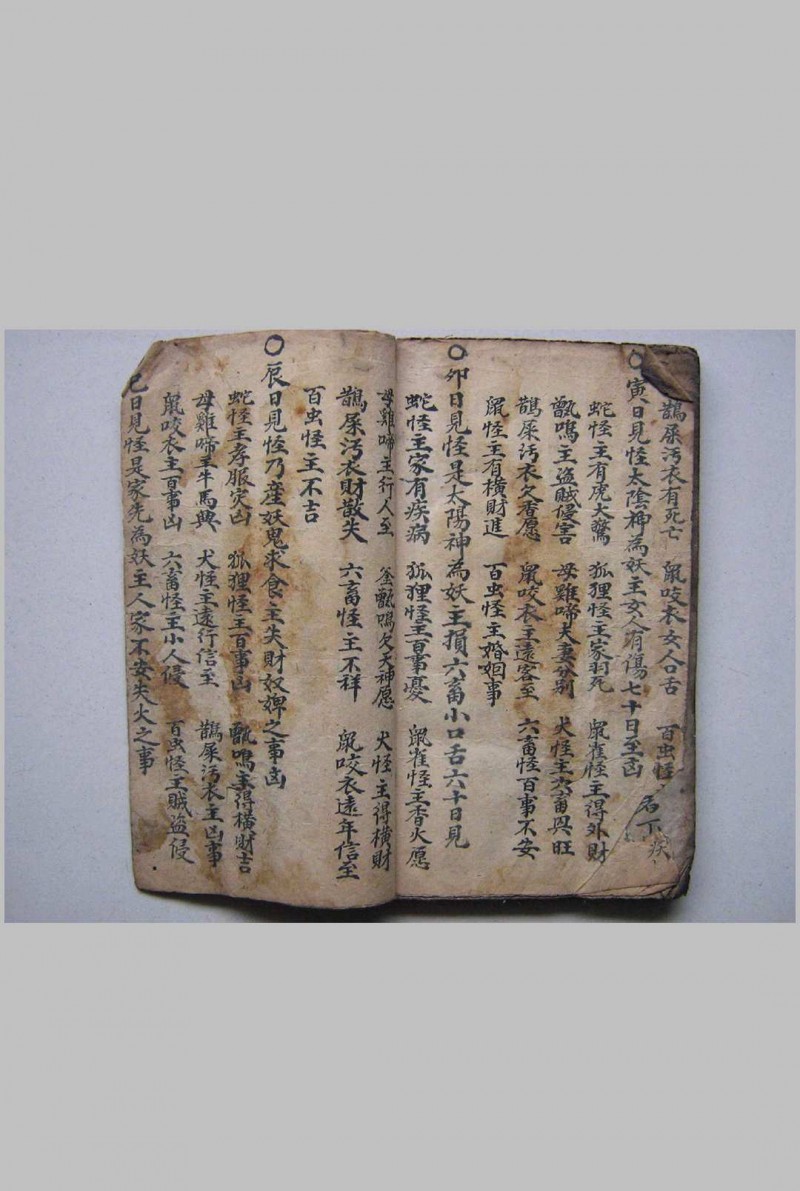 鵲屎污衣有死亡 鼠咬衣女人口舌 百虫怪
〇寅日見怪太陰神為妖主女人有傷七十日至凶
蛇怪主有虎大驚 狐狸怪主家羽死 鼠雀怪主得外財
甑鳴主盜賊侵害 母雞啼夫妻分別 犬怪主六畜興旺
鵲屎污衣欠香愿 鼠咬衣主遠客至 六畜怪百事不安
鼠怪主有橫財進 百虫怪主婚姻事
〇卯日見怪是太陽神為妖主損六畜小口舌六十日見
蛇怪主家有疾病 狐狸怪主百事憂 鼠雀怪主香火愿
母雞啼主行人至 釜甑鳴欠天神愿 犬怪主得橫財
鵲屎污衣財散失 六畜怪主不祥 鼠咬衣遠年信至
百虫怪主不吉
〇辰日見怪乃産妖鬼求食主失財奴婢之事凶
蛇怪主孝服灾凶 狐狸怪主百事凶 甑鳴主得橫財吉
母雞啼主牛馬興 犬怪主遠行信至 鵲屎污衣主凶事
鼠咬衣主百事凶 六畜怪主小人侵 百虫怪主賊盜侵
巳日見怪是家先為妖主人家不安失火之事